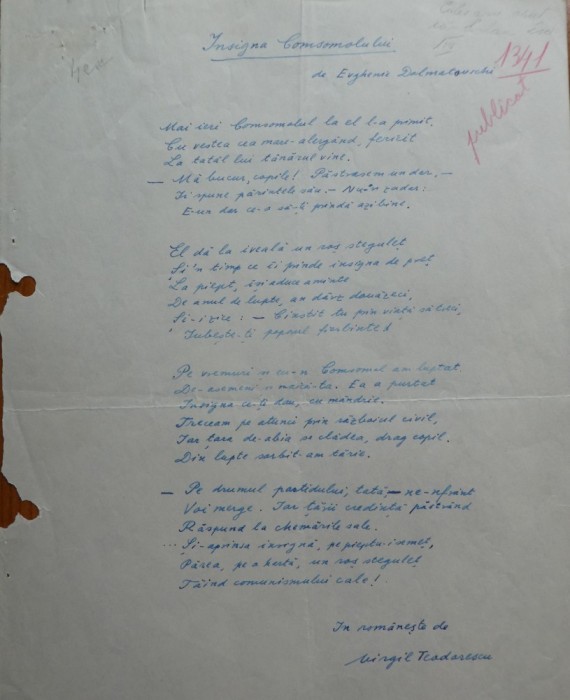 Insigna Comsomolului
de Evghenii Dolmatovschi
1341
publicat
Mai ieri Comsomolul la el l-a primit.
Cu vestea cea mare-alergând, fericit
La tatăl lui tânărul vine.
— Mă bucur, copile! Păstrasem un dar, —
Îi spune părintele său. — Nu-n zadar:
E-un dar ce-o să-ți prindă azi bine.
El dă la iveală un roș steguleț
Și 'n timp ce îi prinde insigna de preț
La piept, își aduce aminte
De anul de lupte, an dârz douăzeci,
Și-i zice: — Cinstit tu prin viață să treci,
Iubește-ți poporul fierbinte!
Pe vremuri și eu-n Comsomol am luptat
De-asemeni și maică-ta. Ea a purtat
Insigna ce-ți dau, cu mândrie.
Treceam pe atunci prin războiul civil,
Iar țara de-abia se clădea, drag copil.
Din lupte sorbit-am tărie.
— Pe drumul partidului, tată — ne-nfrânt
Voi merge. Iar țării credință păstrând
Răspund la chemările sale.
... Și-aprinsa insignă, pe pieptu-i
Părea, pe o hartă, un roș steguleț
Tăind comunismului cale!
In românește de
Virgil Teodorescu